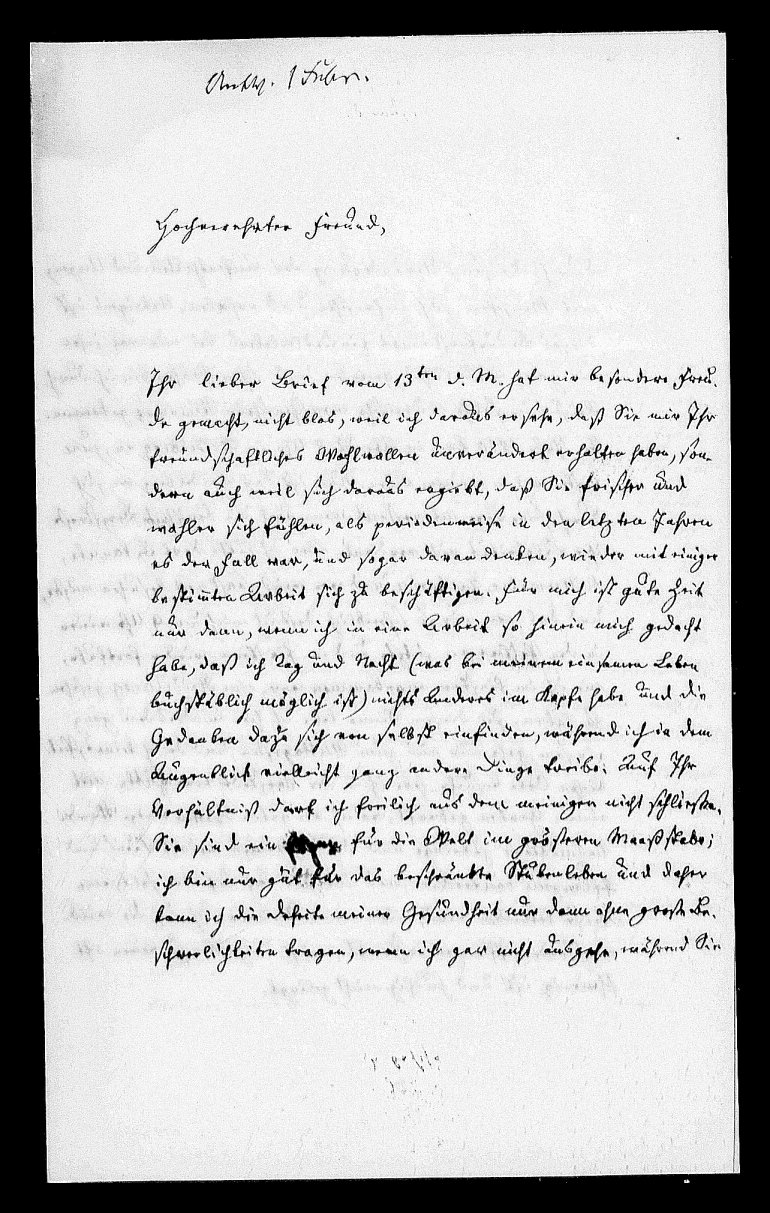 Antw. 1 Febr.
Hochverehrter Freund,
Ihr lieber Brief vom 13ten d. M. hat mir besondere Freu-
de gemacht, nicht blos, weil ich daraus ersehe, daß Sie mir Ihr
freundschaftliches Wohlwollen unverändert erhalten haben, son-
dern auch weil sich daraus ergiebt, daß Sie frischer und
wohler sich fühlen, als periodenweise in den letzten Jahren
es der Fall war, und sogar daran denken, wieder mit einiger
bestimmten Arbeit sich zu beschäftigen. Für mich ist gute Zeit
nur dann, wenn ich in eine Arbeit so hinein mich gedacht
habe, daß ich Tag und Nacht (was bei meinem einsamen Leben
buchstäblich möglich ist) nichts Anderes im Kopfe habe und die
Gedanken dazu sich von selbst einfinden, während ich in dem
Augenblick vielleicht ganz andere Dinge treibe. Auf Ihr
Verhältniß darf ich freilich aus dem meinigen nicht schließen.
Sie sind ein für die Welt im größeren Maaßstabe;
ich bin nur gut für das beschränkte Stubenleben und daher
kann ich die Defecte meiner Gesundheit nur dann ohne große Be-
schwerlichkeiten tragen, wenn ich gar nicht ausgehe, während Sie